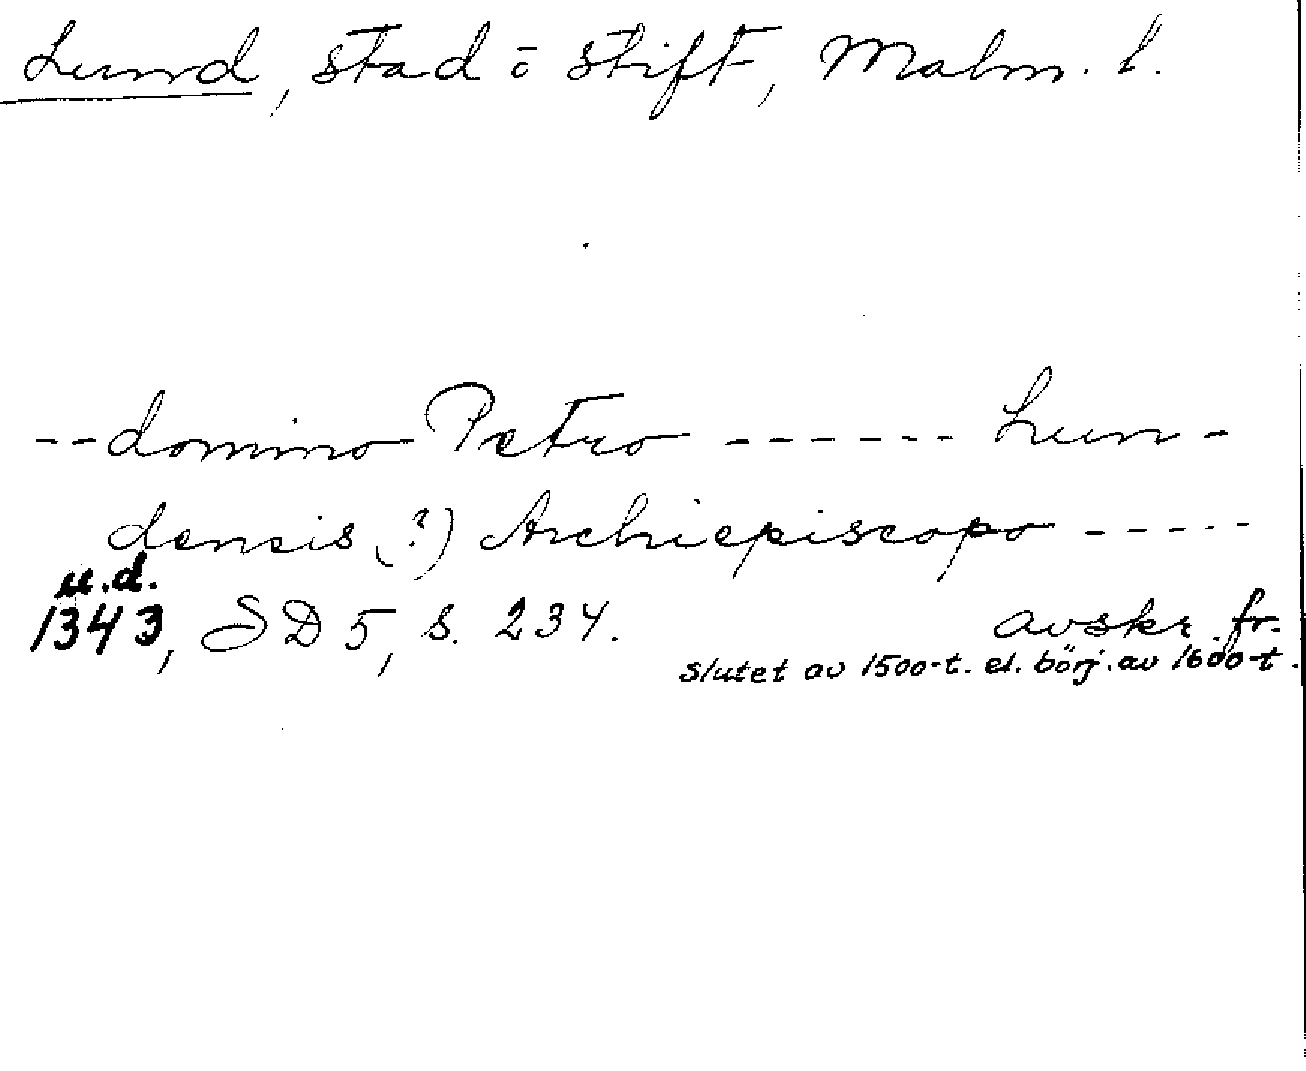 Lund, stad o stift, Malm. l.
--domino Petro ------ Lun-
densis (?) Archiepiscopo -----
u.d.
1343, SD 5, s. 234. avskr. fr.
slutet av 1500-t. el. börj. av 1600-t.